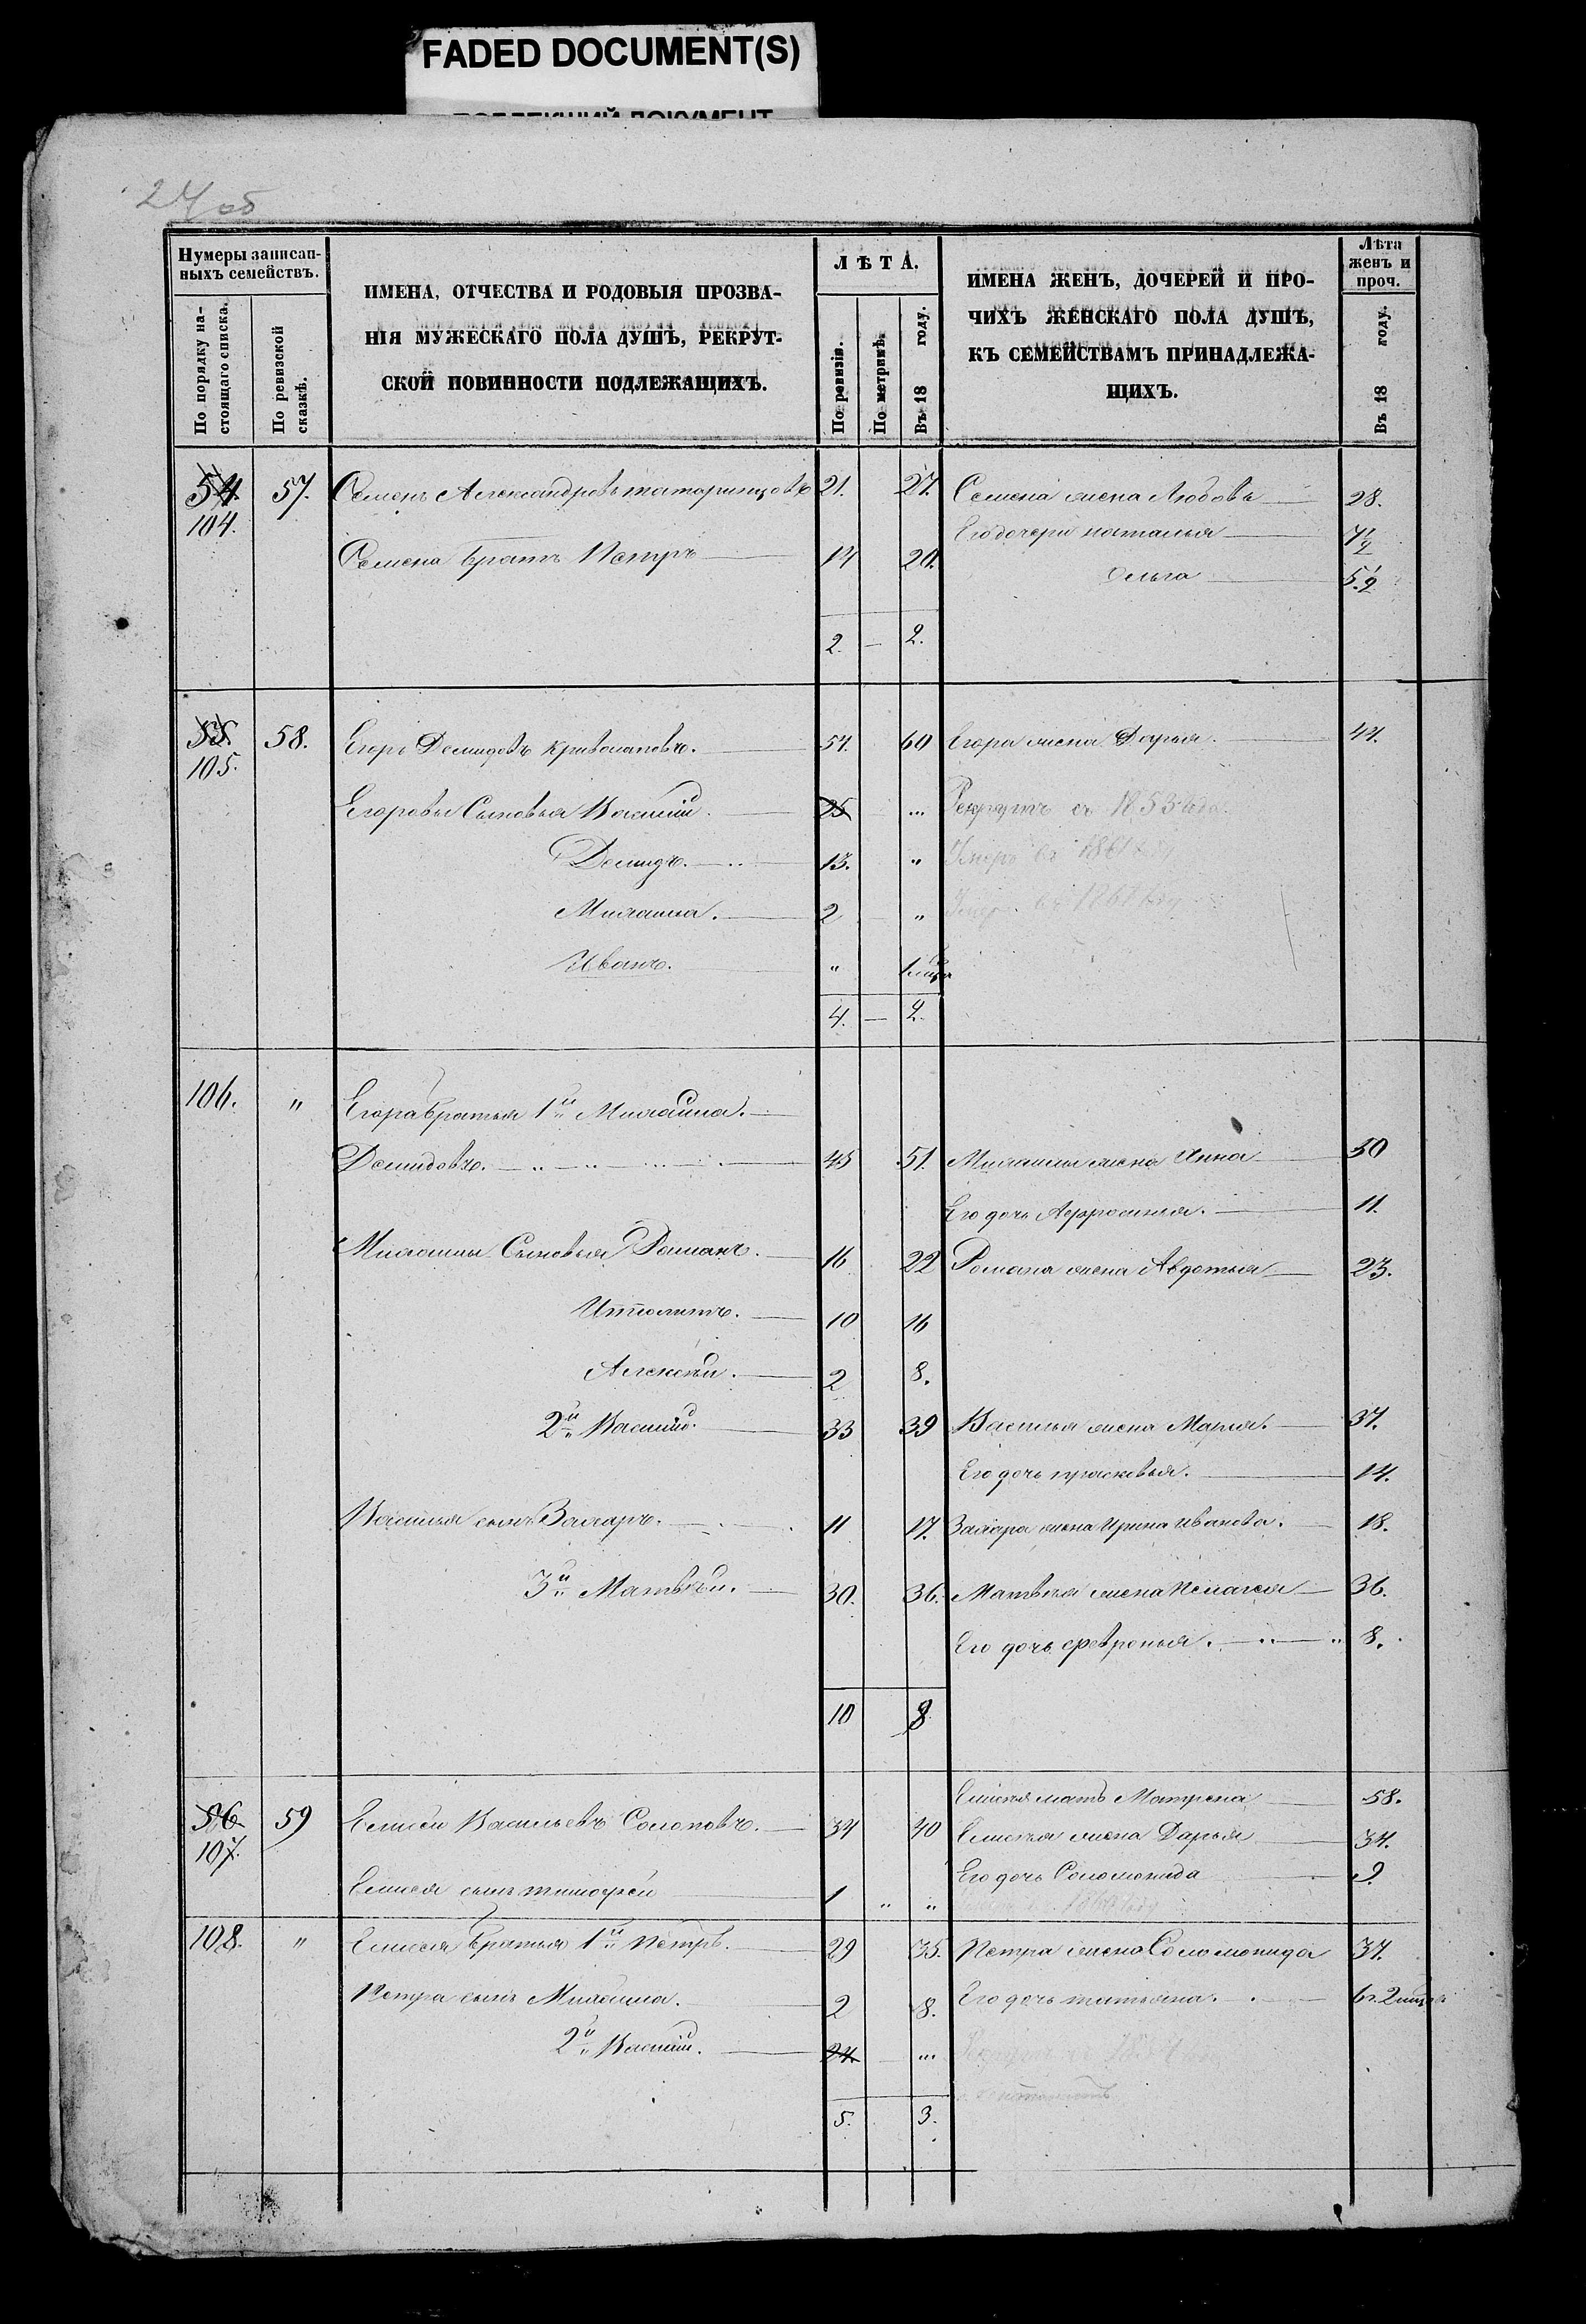 FADED DOCUMENT(S)
24 об
Нумеры записан-
ныхъ семействъ.
По порядку на-
стоящаго списка.
По ревизской
сказкѣ.
ИМЕНА, ОТЧЕСТВА И РОДОВЫЯ ПРОЗВА-
НІЯ МУЖЕСКАГО ПОЛА ДУШЪ, РЕКРУТ-
СКОЙ ПОВИННОСТИ ПОДЛЕЖАЩИХЪ.
ЛѢТА.
По ревизіи.
По метрикѣ.
Въ 18 году.
ИМЕНА ЖЕНЪ, ДОЧЕРЕЙ И ПРО-
ЧИХЪ ЖЕНСКАГО ПОЛА ДУШЪ,
КЪ СЕМЕЙСТВАМЪ ПРИНАДЛЕЖА-
ЩИХЪ.
Лѣта
женъ и
проч.
Въ 18 году.
54. 57. Семенъ Александровъ татаринцовъ 21. 27. Семена жена Любовь 28.
104.
Его дочери наталья 7 1/2
Семена братъ Петръ 14 20.
Ольга 5 1/2
2. — 2.
55. 58. Егоръ Демидовъ Кривolаповъ. 54. 60 Егора жена Дарья. 44.
105.
Егоровы Сыновья Василiй. 25 ... Рекрутъ съ 1853 года.
Демидъ. 13. " Умеръ въ 1861 году
Михаила. 2 " Умеръ въ 1861 году
Иванъ. "
4. — 2.
106. " Егора братья 1й Михаила.
Демидовъ. 45 51. Михаилы жена Анна 50
Его дочь Афросинья. 11.
Михаилы Сыновья Романъ. 16 22 Романа жена Авдотья 23.
Ипполитъ. 10 16
Алексѣй. 2 8.
2й Василiй. 33 39 Василья жена Марья. 37.
Его дочь прасковья. 14.
Василья сынъ Захаръ. 11 17. Захара жена Ирина Иванова. 18.
3й Матвѣй. 30. 36. Матвѣя жена Пелагея 36.
Его дочь февронья. 8.
10 8
Елисея мать Матрена 58.
56 59 Елисей Васильевъ Солоповъ. 34 40 Елисея жена Дарья 34.
107.
Его дочь Соломонида 9.
Елисея сынъ тимофей 1 " "
108. " Елисея братья 1й Петръ. 29 35. Петра жена Соломонида 37.
Петра сынъ Михаила. 2 8. Его дочь татьяна. 6 г. 2 мца
2й Василiй. 24. ...
5. 3.